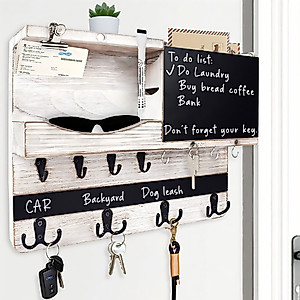 To do list:
✓Do Laundry
Buy bread coffee
Bank
Don't forget your key.
CAR Backyard Dog leash